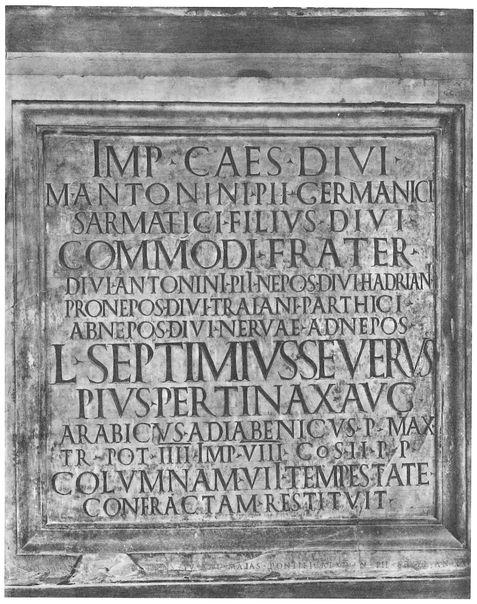 IMP · CAES · DIVI ·
M ANTONINI · PII · GERMANICI
SARMATICI · FILIVS · DIVI ·
COMMODI · FRATER ·
DIVI · ANTONINI · PII · NEPOS · DIVI · HADRIAN
PRONEPOS · DIVI · TRAIANI · PARTHICI ·
ABNEPOS · DIVI · NERVAE · ADNEPOS ·
L · SEPTIMIVS · SEVERVS
PIVS · PERTINAX · AVG
ARABICVS · ADIABENICVS · P · MAX
TR · POT · IIII · IMP · VIII · COS · II · P · P
COLVMNAM · VII · TEMPESTATE ·
CONFRACTAM · RESTITVIT ·
MAIAS · PONTIFICATVS